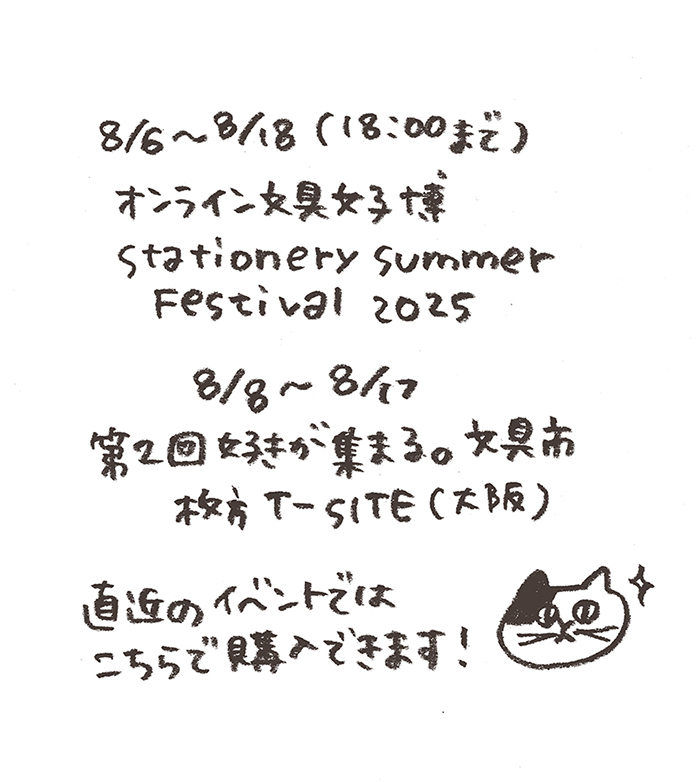 8/6〜8/18（18:00まで）
オンライン文具女子博
stationery summer
Festival 2025
8/8〜8/17
第2回好きが集まる。文具市
枚方T-SITE（大阪）
直近のイベントでは
こちらで購入できます！